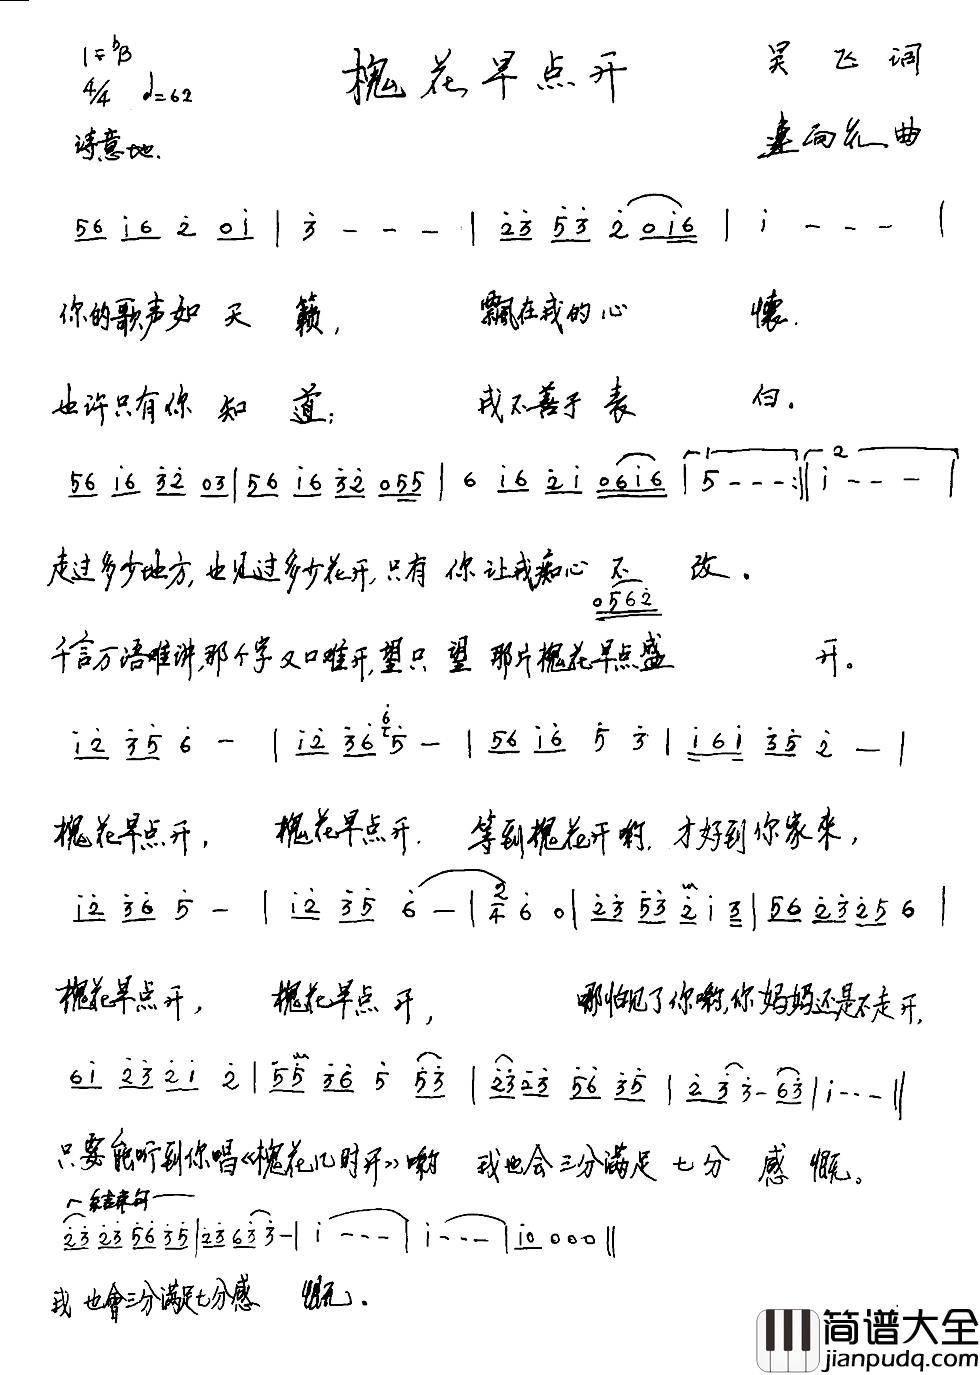 1=bB
4/4 ♩=62
诗意地.
槐花早点开
吴飞词
曲
56 i6 2 0i | 3 - - - | 23 53 2 0i6 | i - - - |
你的歌声如天籁, 飘在我的心怀.
也许只有你知道; 我不善于表白.
56 i6 32 03 | 56 i6 32 055 | 6 i6 2i 06i6 | 1 5 - - - :|| 2 i - - - |
走过多少地方,也见过多少花开,只有你让我痴心不改。
0562
千言万语难讲,那个字又口难开,望只望那片槐花早点盛开。
i2 35 6 - | i2 36 6 5 - | 56 i6 5 3 | i6i 35 2 - |
槐花早点开, 槐花早点开. 等到槐花开哟.才好到你家来,
i2 36 5 - | i2 35 6 - | 2/4 6 0 | 23 53 2 i 3 | 56 23 25 6 |
槐花早点开, 槐花早点开, 哪怕见了你哟,你妈妈还是不走开,
6i 23 2i 2 | 55 36 5 53 | 23 23 56 35 | 2 3 3 - 63 | i - - - ||
只要能听到你唱《槐花几时开》哟 我也会三分满足七分感慨。
结束句
23 23 56 35 | 23 63 3 - | i - - - | i - - - | i0 0 0 0 ||
我也會三分满足七分感慨。
简谱大全
jianpudq.com